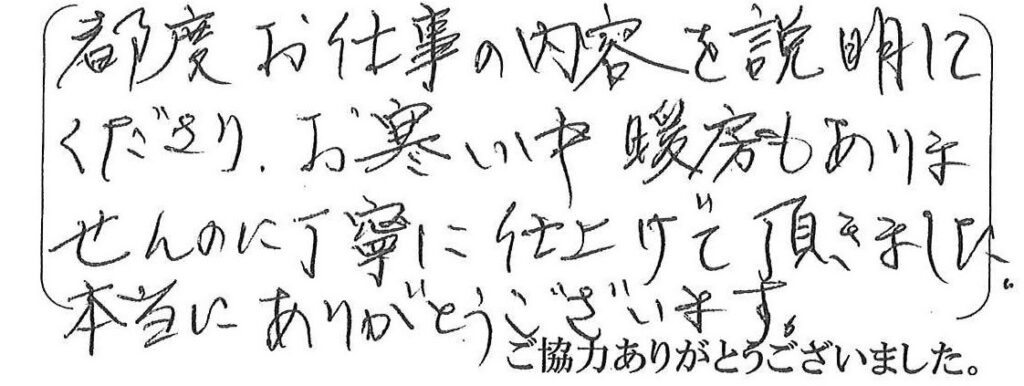 都度お仕事の内容を説明して
くださり、お寒い中暖房もありま
せんのに丁寧に仕上げて頂きました。
本当にありがとうございます。
ご協力ありがとうございました。